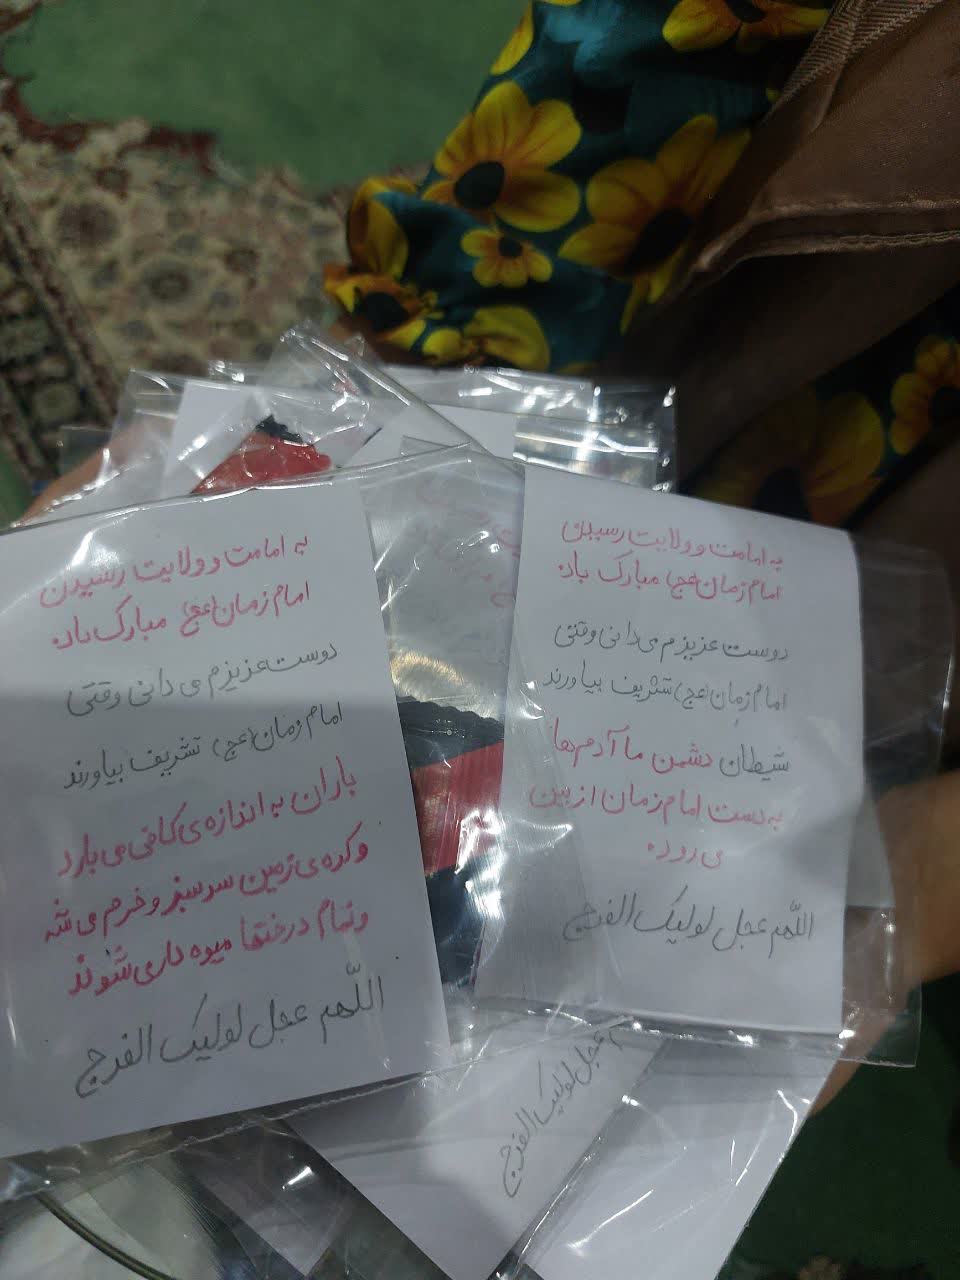 به امامت و ولایت رسیدن
امام زمان(عج) مبارک باد.
دوست عزیزم می دانی وقتی
امام زمان(عج) تشریف بیاورند
شیطان دشمن ما آدم‌ها
به دست امام زمان از بین
می رود.
اللّهم عجل لولیک الفرج
به امامت و ولایت رسیدن
امام زمان(عج) مبارک باد.
دوست عزیزم می دانی وقتی
امام زمان(عج) تشریف بیاورند
باران به اندازه ی کافی می بارد
و کره ی زمین سرسبز و خرم می شه
و تمام درختها میوه داری شوند
اللّهم عجل لولیک الفرج
عجل لولیک الفرج